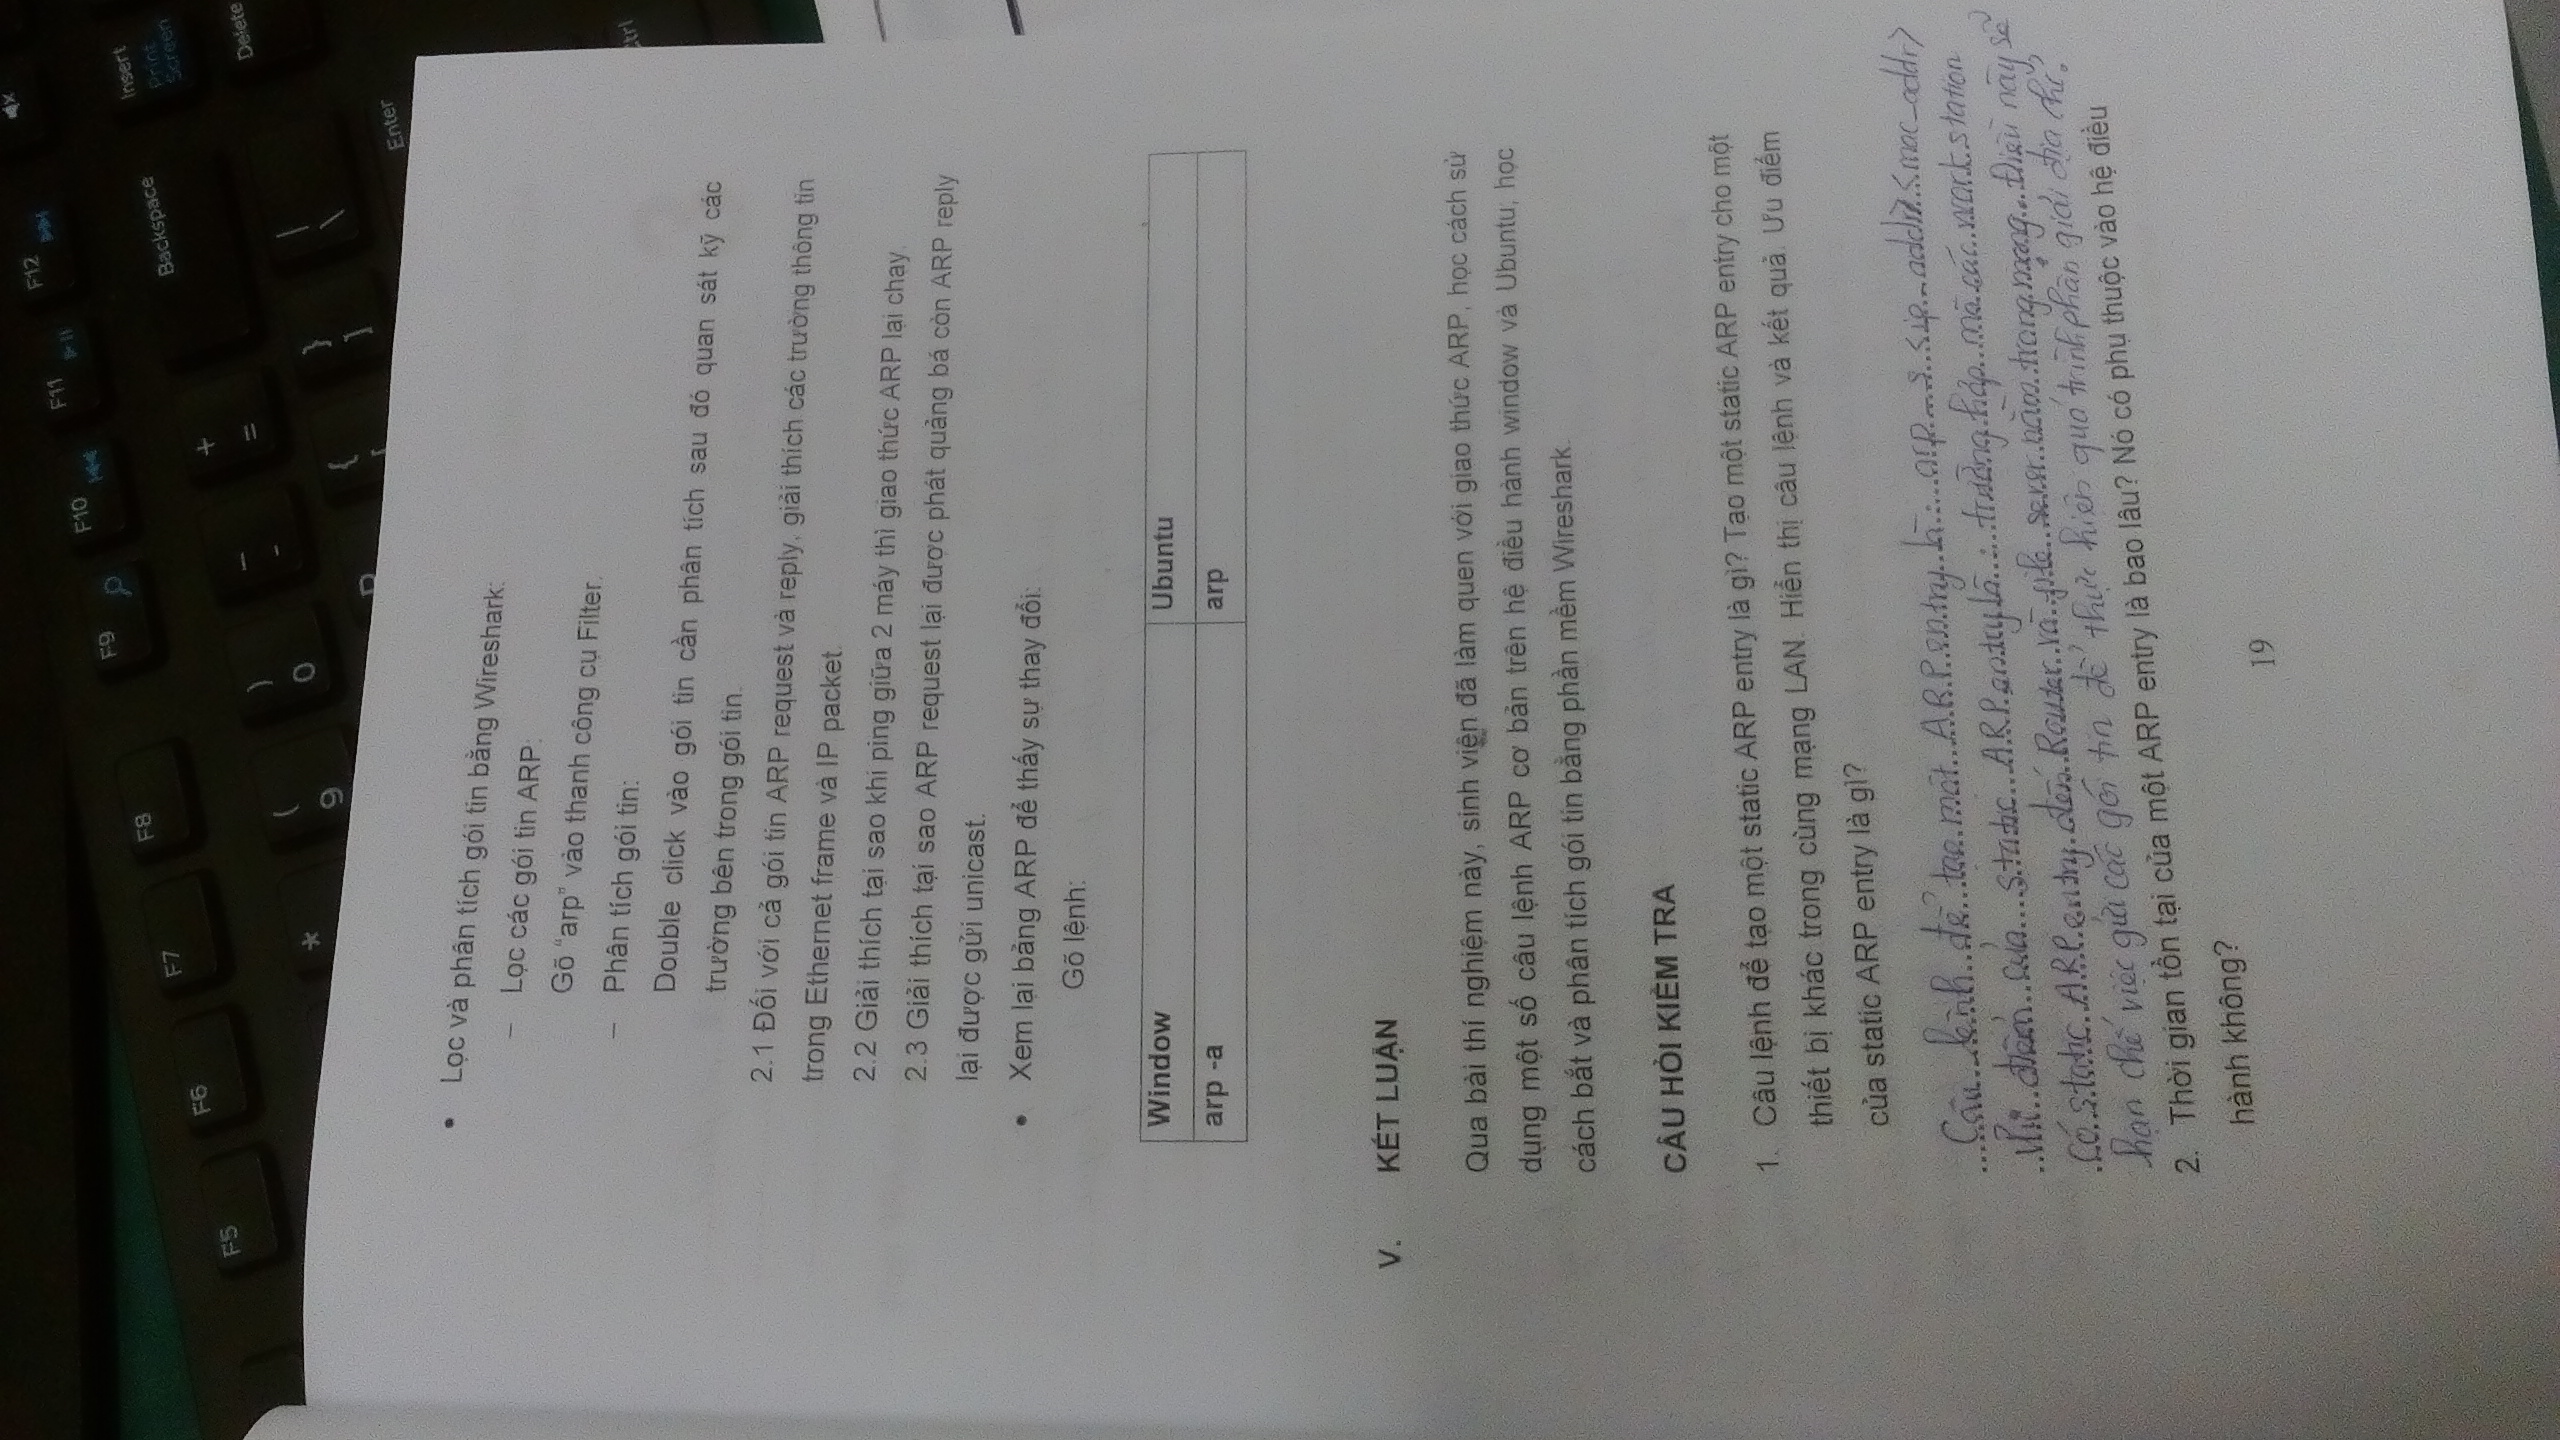 F5 F6 F7 F8 F9 F10 F11 F12
Insert
Print
Screen
Backspace
Delete
* ( ) _ +
9 0 - =
{ } |
[ ] \
P
Enter
Ctrl
• Lọc và phân tích gói tin bằng Wireshark:
– Lọc các gói tin ARP:
Gõ “arp” vào thanh công cụ Filter.
– Phân tích gói tin:
Double click vào gói tin cần phân tích sau đó quan sát kỹ các
trường bên trong gói tin.
2.1 Đối với cả gói tin ARP request và reply, giải thích các trường thông tin
trong Ethernet frame và IP packet.
2.2 Giải thích tại sao khi ping giữa 2 máy thì giao thức ARP lại chạy.
2.3 Giải thích tại sao ARP request lại được phát quảng bá còn ARP reply
lại được gửi unicast.
• Xem lại bảng ARP để thấy sự thay đổi:
Gõ lệnh:
Window Ubuntu
arp -a arp
V. KẾT LUẬN
Qua bài thí nghiệm này, sinh viên đã làm quen với giao thức ARP, học cách sử
dụng một số câu lệnh ARP cơ bản trên hệ điều hành window và Ubuntu, học
cách bắt và phân tích gói tin bằng phần mềm Wireshark.
CÂU HỎI KIỂM TRA
1. Câu lệnh để tạo một static ARP entry là gì? Tạo một static ARP entry cho một
thiết bị khác trong cùng mạng LAN. Hiển thị câu lệnh và kết quả. Ưu điểm
của static ARP entry là gì?
Câu lệnh để tạo một ARP entry là: arp -s <ip_addr> <mac_addr>
Ưu điểm của static ARP entry là: trường hợp mà các work station
có static ARP entry đến Router và file sever nằm trong mạng. Điều này sẽ
hạn chế việc gửi các gói tin để thực hiện quá trình phân giải địa chỉ.
2. Thời gian tồn tại của một ARP entry là bao lâu? Nó có phụ thuộc vào hệ điều
hành không?
19